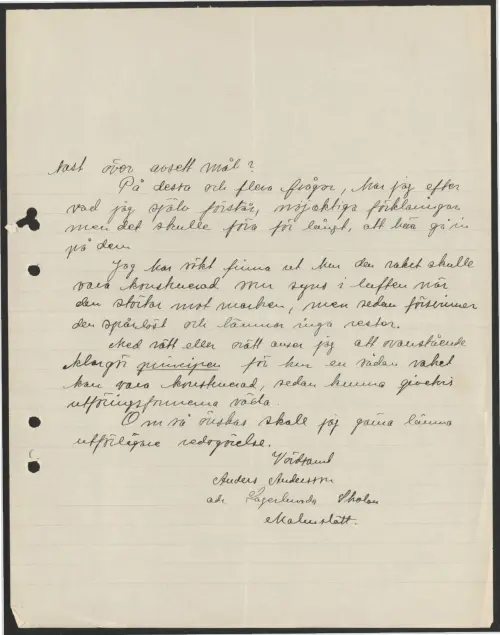 tast över avsett mål?
På dessa och flera frågor, har jag efter
vad jag själv förstår, nöjaktiga förklaringar
men det skulle föra för långt, att här gå in
på dem
Jag har sökt finna ut hur den raket skulle
vara konstruerad som syns i luften när
den störtar mot marken, men sedan försvinner
den spårlöst och lämnar inga rester.
Med rätt eller orätt anser jag att ovanstående
klargör principen för hur en sådan raket
kan vara konstruerad, sedan kunna givetvis
utföringsformerna växla.
Om så önskas skall jag gärna lämna
utförligare redogörelse.
Vördsamt
Anders Andersson
adr. Lagerlunda Skolan
Malmslätt.